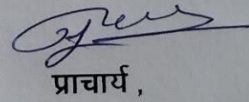 प्राचार्य ,